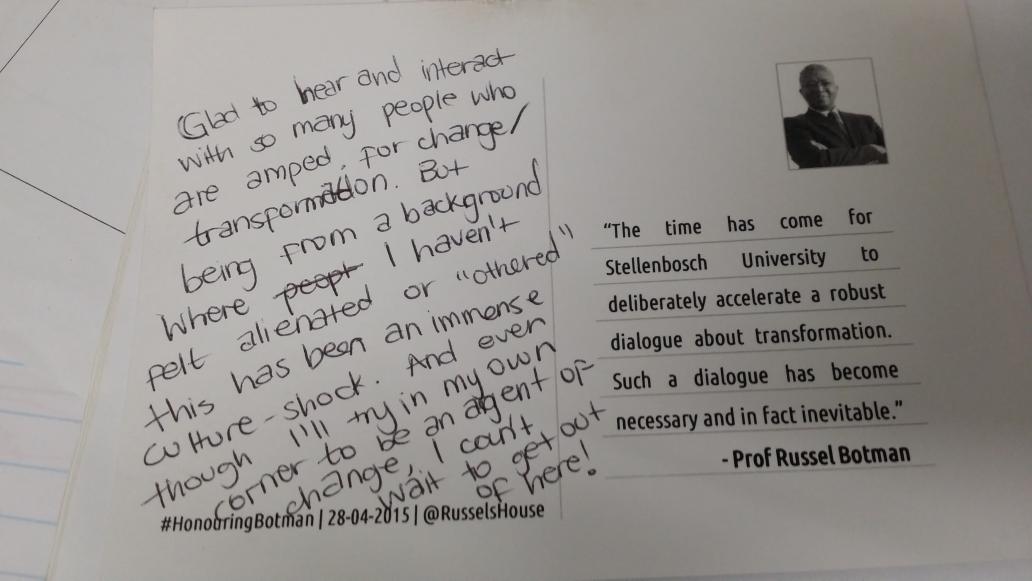 Glad to hear and interact
with so many people who
are amped. for change/
transformation. But
being from a background
where peopt I haven't
felt alienated or "othered"
this has been an immense
culture-shock. And even
though I'll try in my own
corner to be an agent of
change, I can't
wait to get out
of here!
#HonouringBotman | 28-04-2015 | @RusselsHouse
"The time has come for
Stellenbosch University to
deliberately accelerate a robust
dialogue about transformation.
Such a dialogue has become
necessary and in fact inevitable."
- Prof Russel Botman